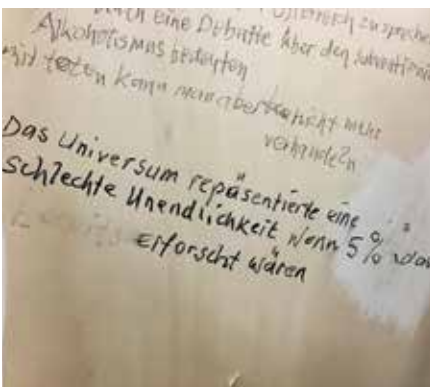 durch eine Debatte über den
Alkoholismus bedeuten
mit toten kann man aber nicht mehr
verhandeln
Das Universum repäsentierte eine
schlechte Unendlichkeit wenn 5%
erforscht wären